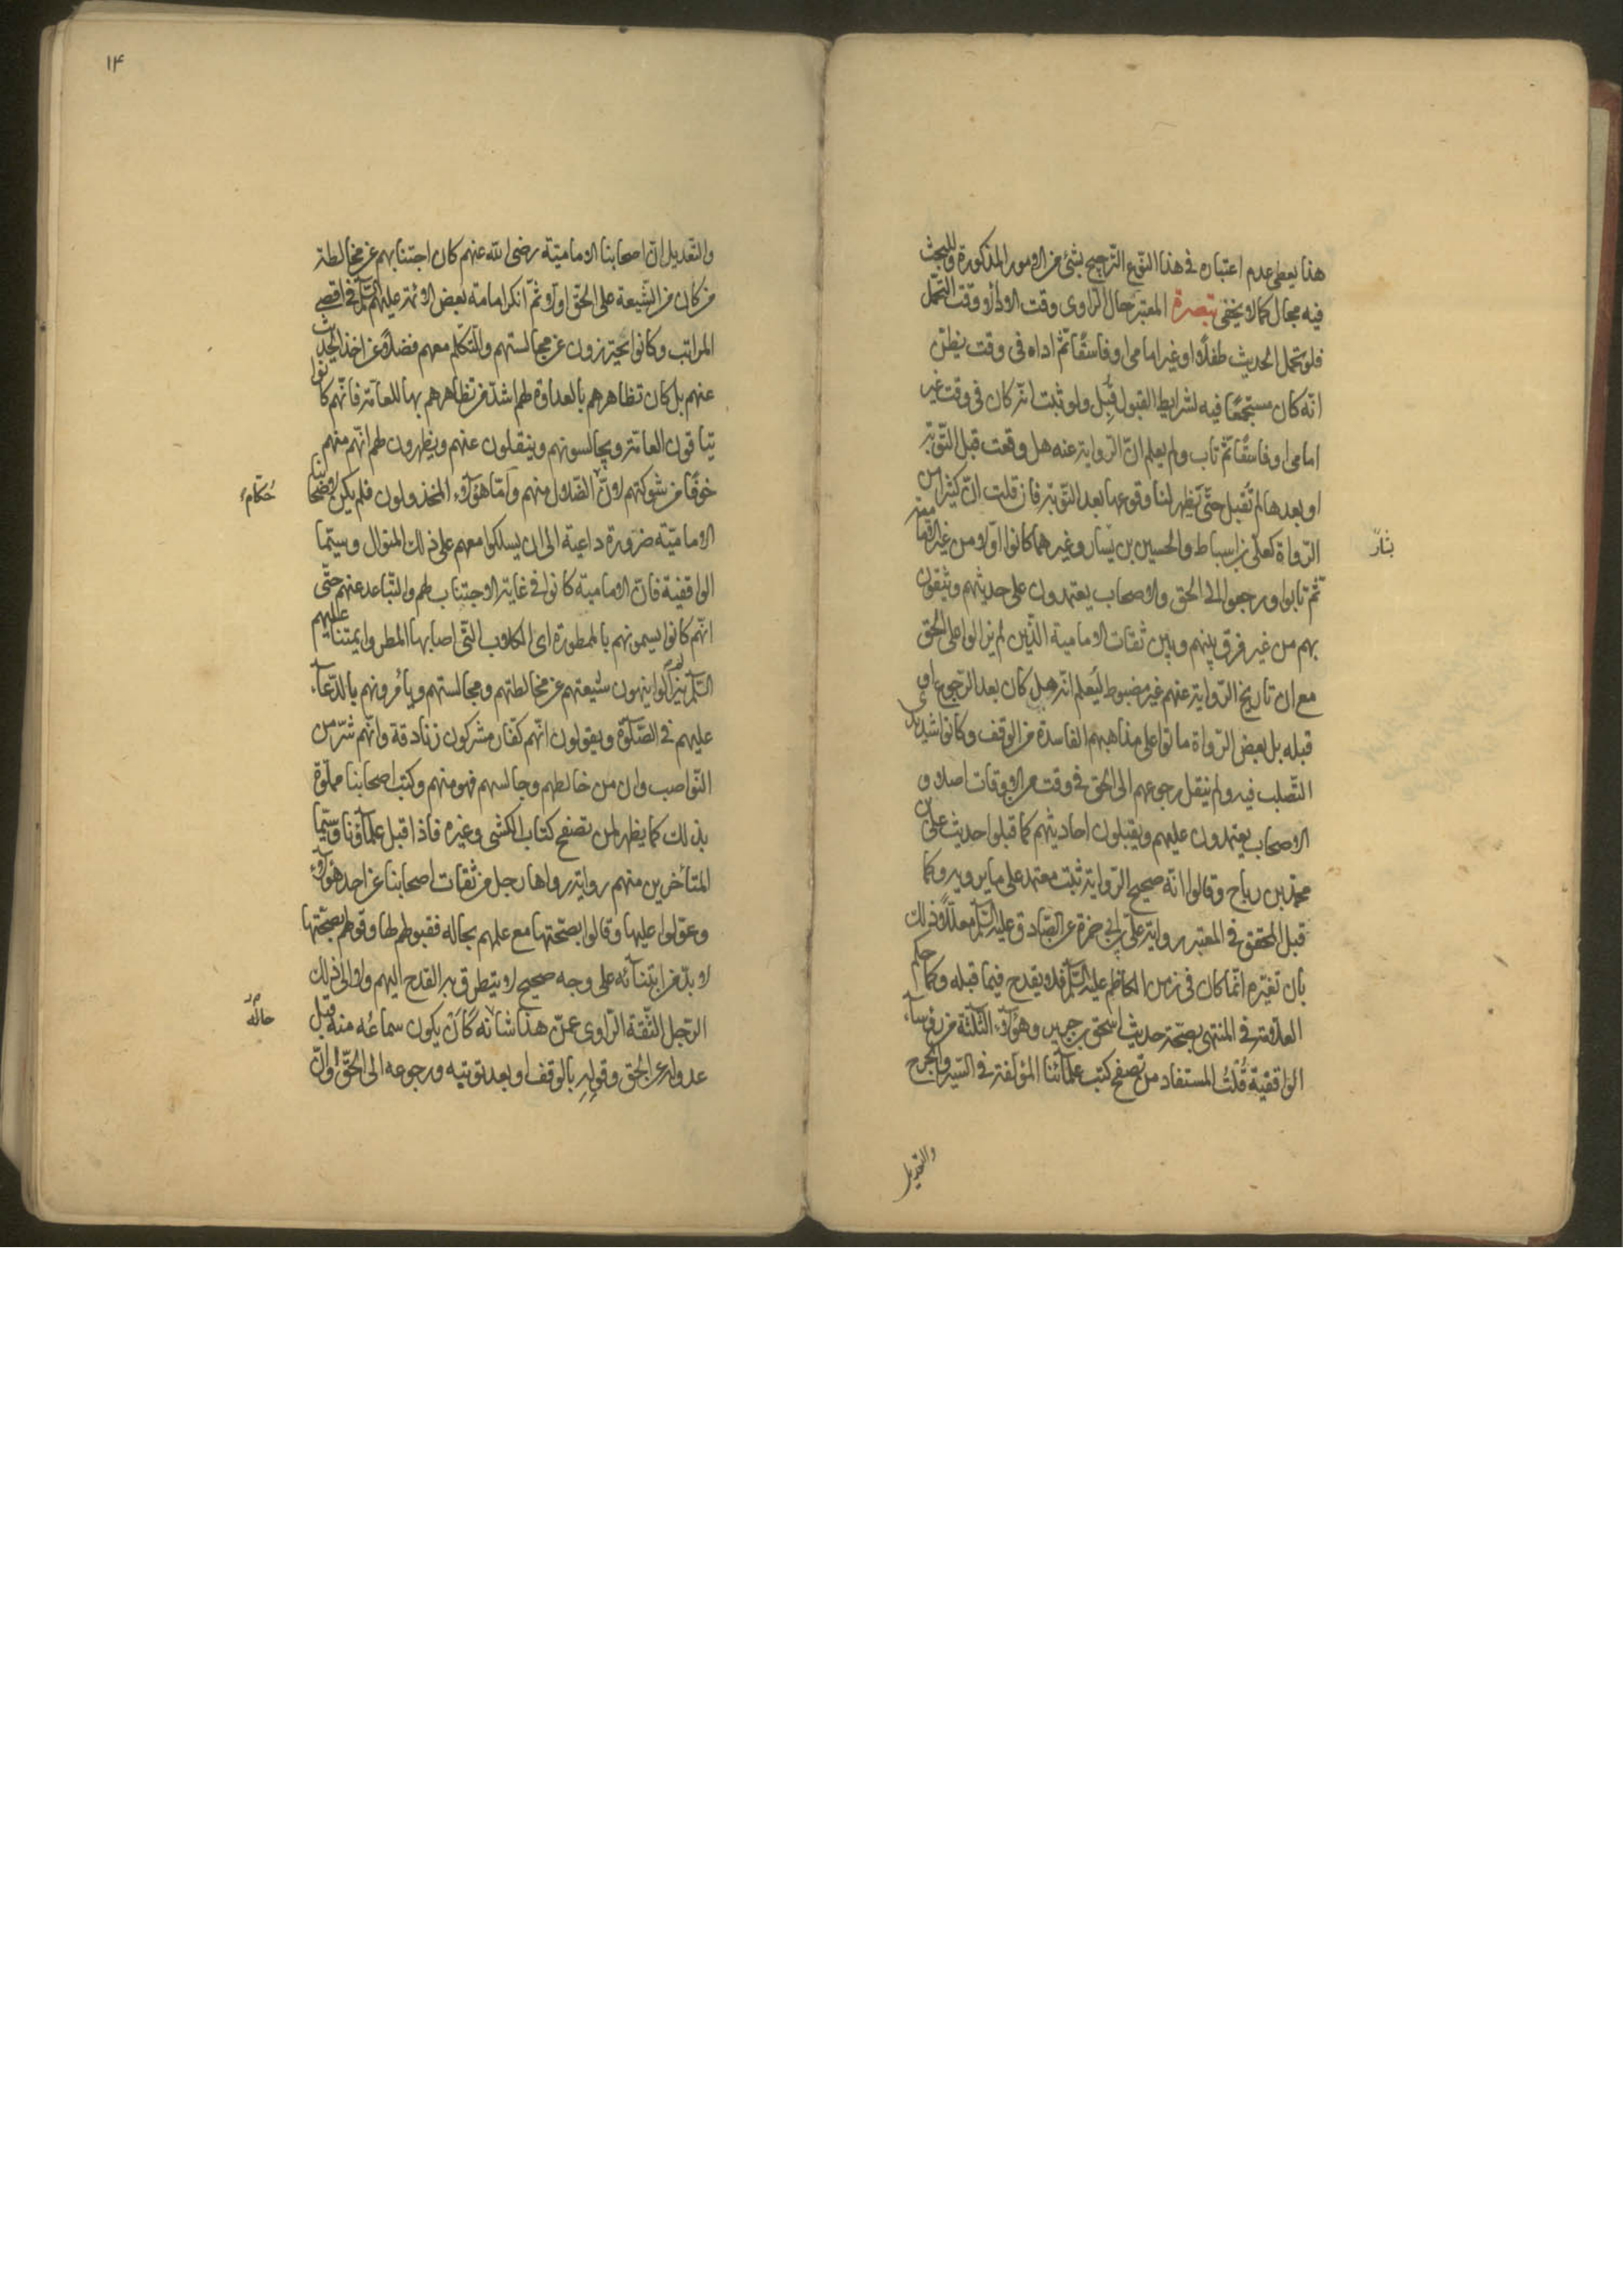 هذا يعطى عدم اعتباره فى هذا النّوع الترجيح بشئ من الامور المذكورة وللبحث
فيه مجال كما لا يخفى تبصرة المعتبر حال الرّاوى وقت الاداء لا وقت التّحمّل
فلو تحمل الحديث طفلًا او غير امامى او فاسقًا ثمّ اداه فى وقت يظنّ
انّه كان مستجمعًا فيه لشرايط القبول قُبِل ولو ثبت انّه كان فى وقت غير
امامى او فاسقًا ثمّ تاب ولم يعلم انّ الرّواية عنه هل وقعت قبل التّوبة
او بعدها لم تُقبل حتّى يَظهر لنا وقوعها بعد التّوبة فان قلت انّ كثيرا من
الرّواة كعلى بن اسباط والحسين بن يَسار وغيرهما كانوا اوّلا من غير الاماميّة
بشّار
ثمّ تابوا ورجعوا الى الحق والاصحاب يعتمدون على حديثهم ويثقون
بهم من غير فرق بينهم وبين ثقات الامامية الّذين لم يزالوا على الحق
مع ان تاريخ الرّواية عنهم غير مضبوط ليُعلم انّه هل كان بعد الرّجوع او
قبله بل بعض الرّواة ماتوا على مذاهبهم الفاسدة من الوقف وكانوا شديدى
التّصلب فيه ولم ينقل رجوعهم الى الحق فى وقت من الاوقات اصلا و
الاصحاب يعتمدون عليهم ويقبلون احاديثهم كما قبلوا حديث علىّ بن
محمّد بن رباح وقالوا انّه صحيح الرّواية ثبت معتمد على ما يرويه وكما
قبل المحقق فى المعتبر رواية علىّ بن ابى حمزة عن الصّادق عليه السّلم معلّلًا ذلك
بان تغيّره انّما كان فى زمن الكاظم عليه السّلم فلا يقدح فيما قبله وكما حكم
العلّامة فى المنتهى بصحّة حديث اسحق بن جرير وهؤلآء الثّلثة من رؤسآء
الواقفيّة قُلتُ المستفاد من تصفح كتب علمآئنا المؤلّفة فى السّير والجرح
والتّعديل
۱۴
والتّعديل انّ اصحابنا الاماميّة رضى الله عنهم كان اجتنابهم عن مخالطة
من كان من الشّيعة على الحقّ اوّلا ثمّ انكر امامة بعض الائمّة عليهم السّلم فى اقصى
المراتب وكانوا يحترزون عن مجالستهم والتّكلم معهم فضلًا عن اخذ الحديث
عنهم بل كان تظاهرهم بالعداوة لهم اشدّ من تظاهرهم بها للعامّة فانّهم كانوا
يتاقون العامّة ويجالسونهم وينقلون عنهم ويظهرون لهم انّهم منهم
خوفًا من شوكتهم لانّ الضّلال منهم وامّا هؤلآء المخذولون فلم يكن لاصحابنا
حُكّام
الاماميّة ضرورة داعية الى ان يسلكوا معهم على ذلك المنوال وسيّما
الواقفية فانّ الامامية كانوا فى غاية الاجتناب لهم والتّباعد عنهم حتّى
انّهم كانوا يسمونهم بالممطورة اى الكلاب التّى اصابها المطر وائمتنا عليهم
السّلم لم يزالوا ينهون شيعتهم عن مخالطتهم ومجالستهم ويأمُرونهم بالدّعآء
عليهم فى الصّلوة ويقولون انّهم كفّار مشركون زنادقة وانّهم شرّ من
النّواصب وان من خالطهم وجالسهم فهو منهم وكتب اصحابنا مملوّة
بذلك كما يظهر لمن تصفح كتاب الكشى وغيره فاذا قبل علمآؤنا وسيّما
المتأخّرين منهم رواية رواها رجل من ثقات اصحابنا عن احد هؤلآء
وعوّلوا عليها وقالوا بصحّتها مع علمهم بحاله فقبولهم لها وقولهم بصحّتها
لا بدّ من ابتنآئه على وجه صحيح لا يتطرّق به القدح اليهم ولا الى ذلك
الرّجل الثّقة الرّاوى عمّن هذا شانه كَان يكون سماعُه منه قبل
حاله
عدوله عن الحق وقولِهِ بالوقف او بعد توبته ورجوعه الى الحقّ او انّ